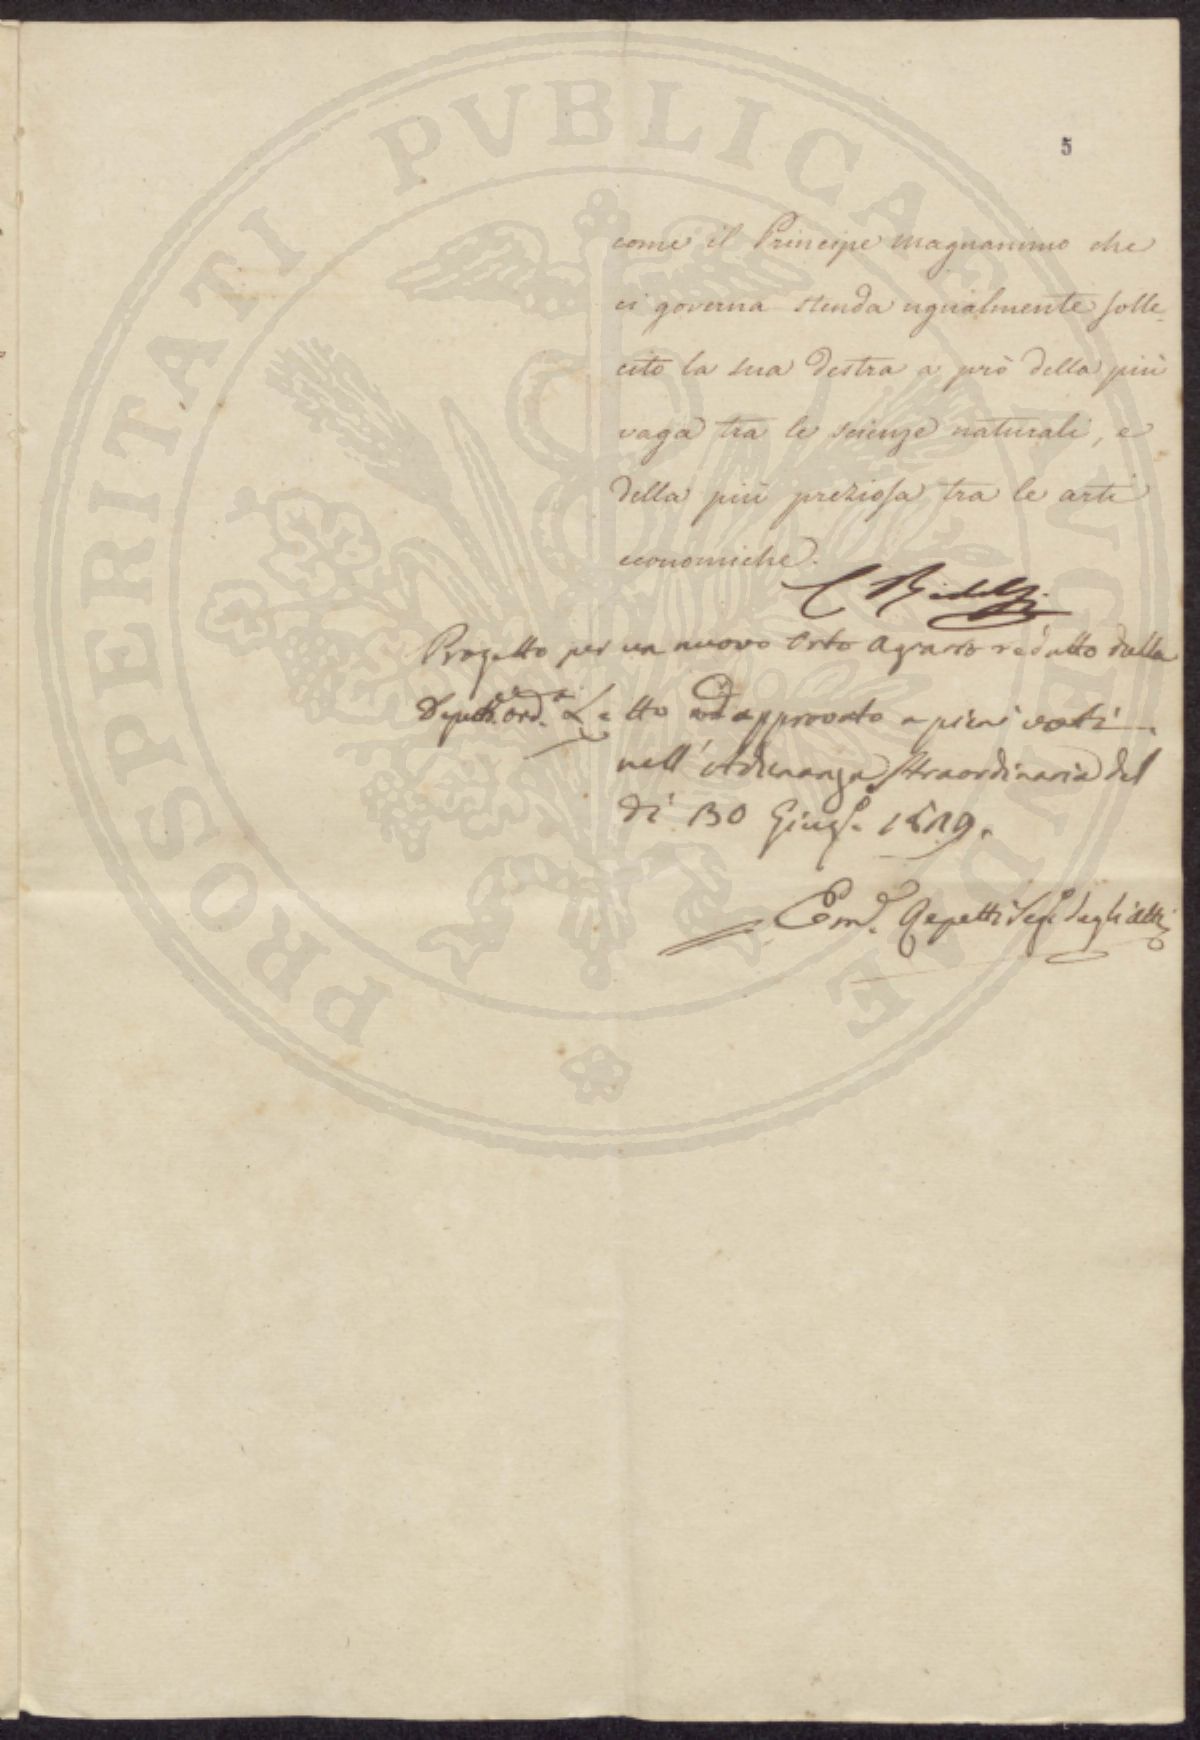 PROSPERITATI PVBLICAE AVGENDAE
5
come il Principe magnanimo che
ci governa stenda ugualmente solle-
cito la sua destra a prò della più
vaga tra le scienze naturali, e
della più preziosa tra le arti
economiche.
C Ridolfi
Progetto per un nuovo Orto Agrario redatto dalla
Deputne. ordia. Letto ed approvato a pieni voti
nell'Adunanza Straordinaria del
dì 30 Giugo. 1819.
Eml. Repetti Sego. degli Atti